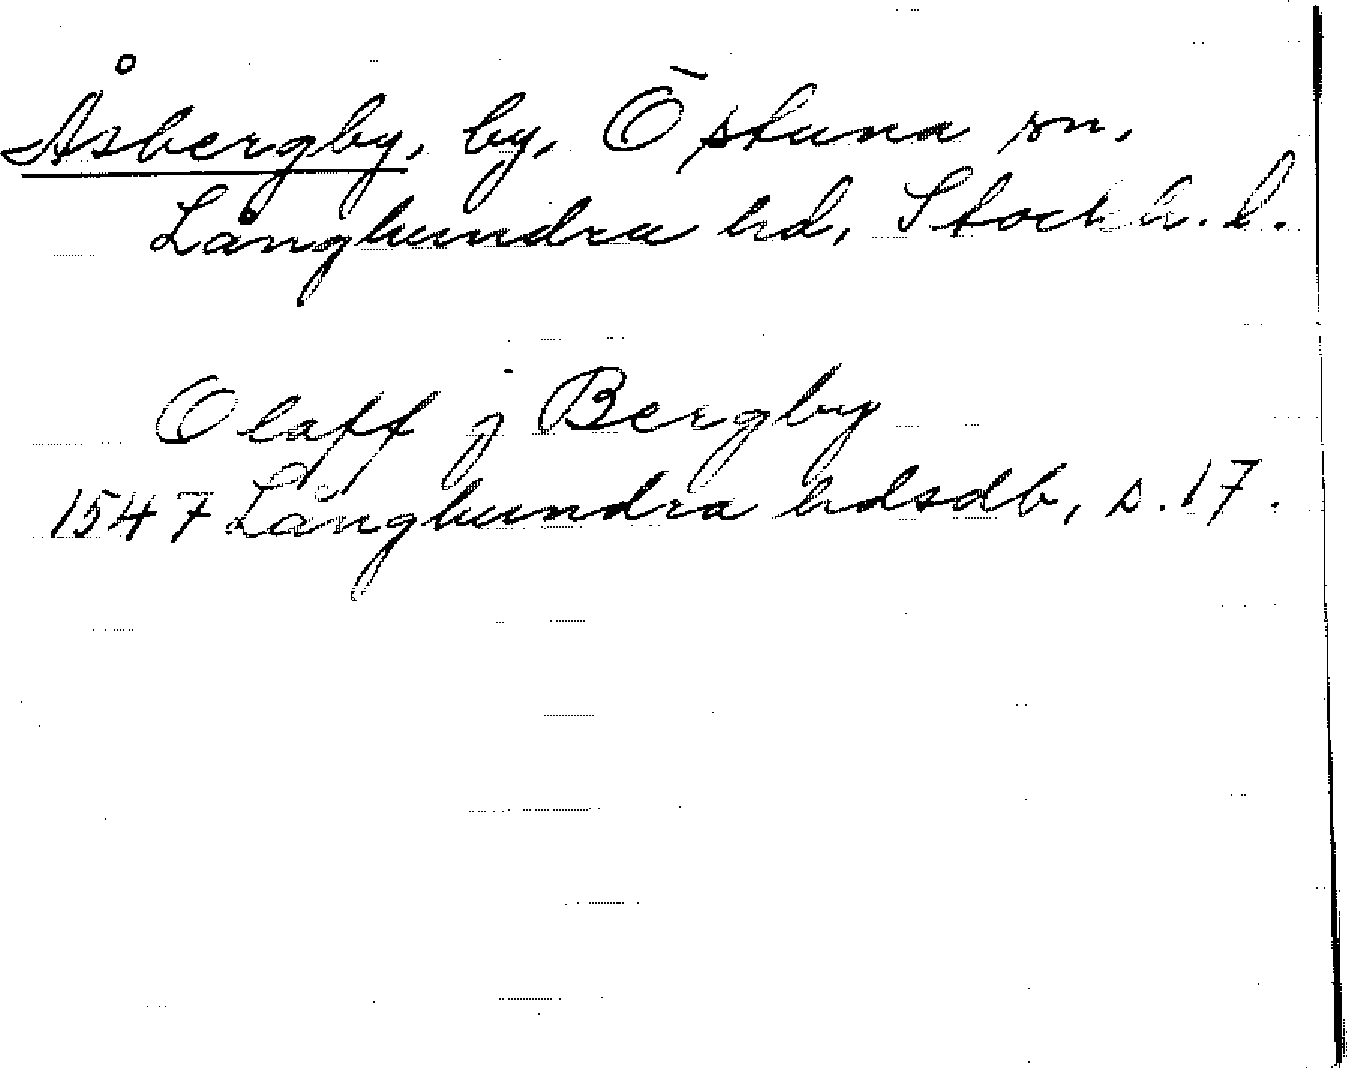 Åsbergby, by, Östuna sn,
Långhundra hd, Stockh. l.
Olaff j Bergby
1547 Långhundra hdsdb, s. 17.